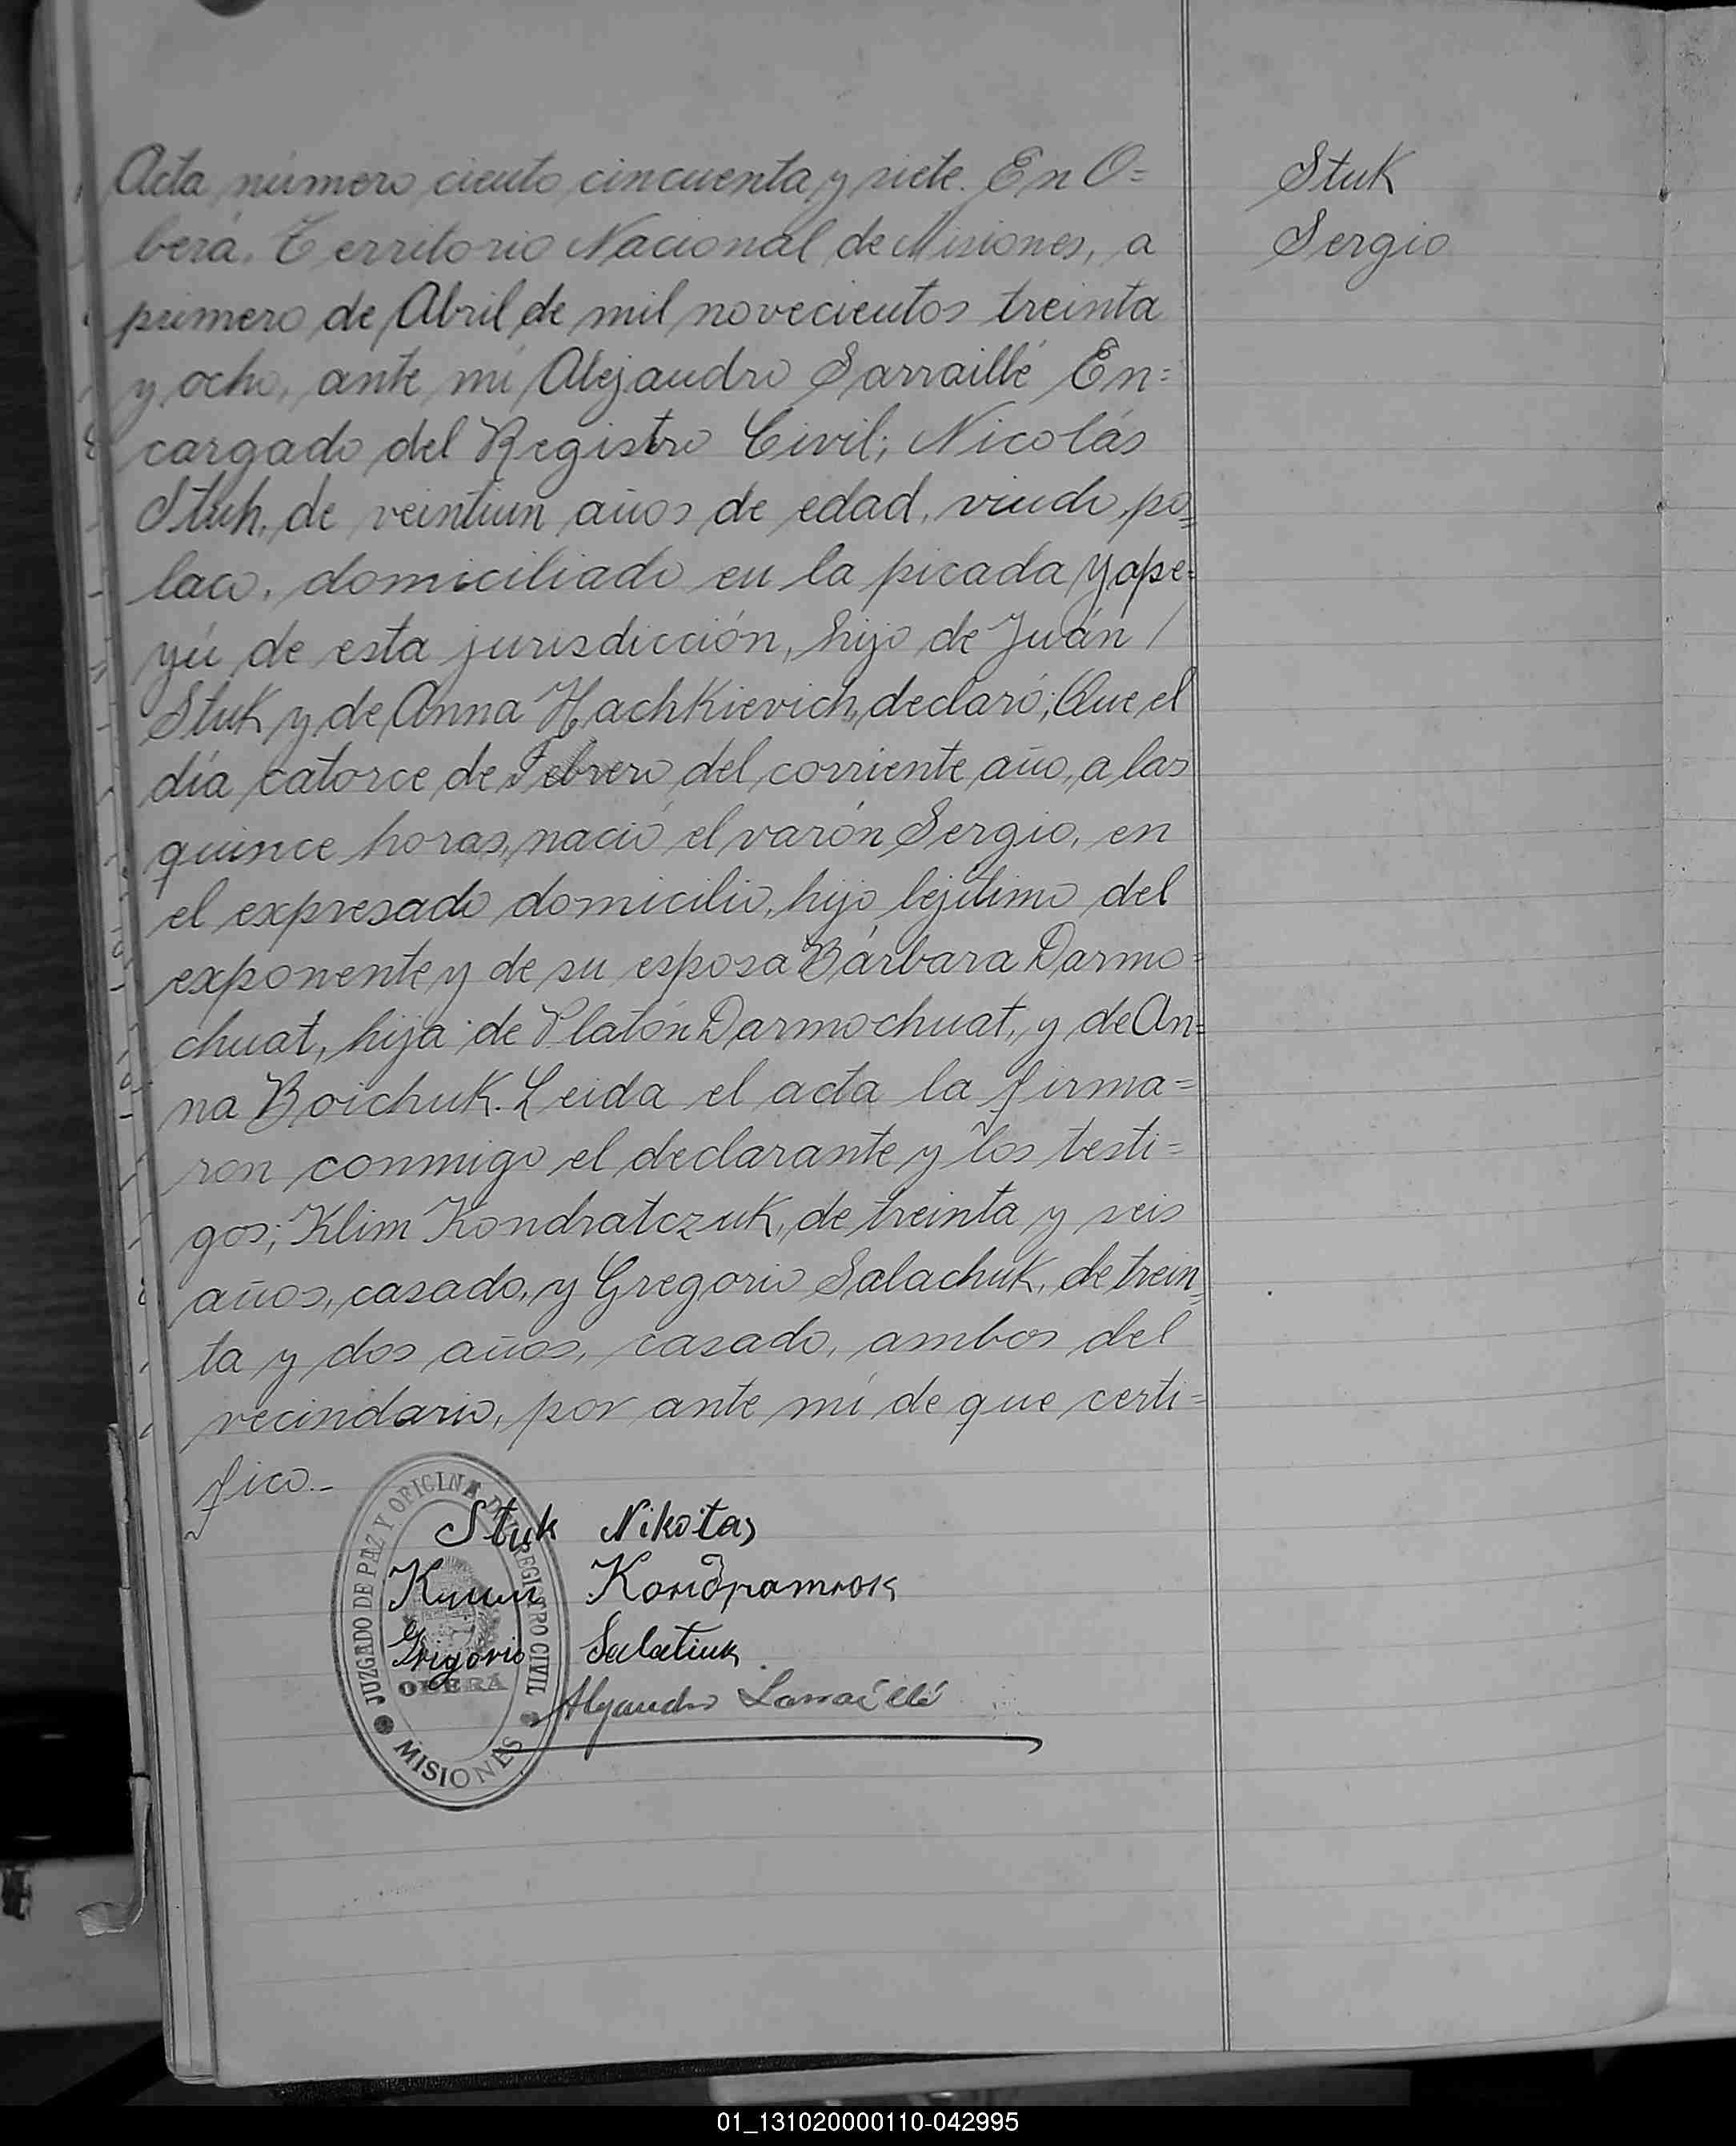 Acta número ciento cincuenta y siete. En O=
berá, Territorio Nacional de Misiones, a
primero de Abril de mil novecientos treinta
y ocho, ante mi Alejandro Sarraillé En=
cargado del Registro Civil; Nicolás
Stuk, de veintiun años de edad, viudo, po=
laco, domiciliado en la picada Yape=
yú de esta jurisdicción, hijo de Juán /
Stuk y de Anna Hachkievich, declaró; Que el
día catorce de Febrero del corriente año, a las
quince horas, nació el varón Sergio, en
el expresado domicilio, hijo lejítimo del
exponente y de su esposa Bárbara Darmo=
chuat, hija de Platón Darmochuat, y de An=
na Boichuk. Leida el acta la firma=
ron conmigo el declarante y los testi=
gos; Klim Kondratczuk, de treinta y seis
años, casado, y Gregorio Salachuk, de trein=
ta y dos años, casado, ambos del
vecindario, por ante mí de que certi=
fico.-
Stuk Nikotas
Grigorio Salatiuk
Alejandro Sarraillé
JUZGADO DE PAZ Y OFICINA DEL REGISTRO CIVIL
OBERÁ
MISIONES
Stuk
Sergio
01_131020000110-042995